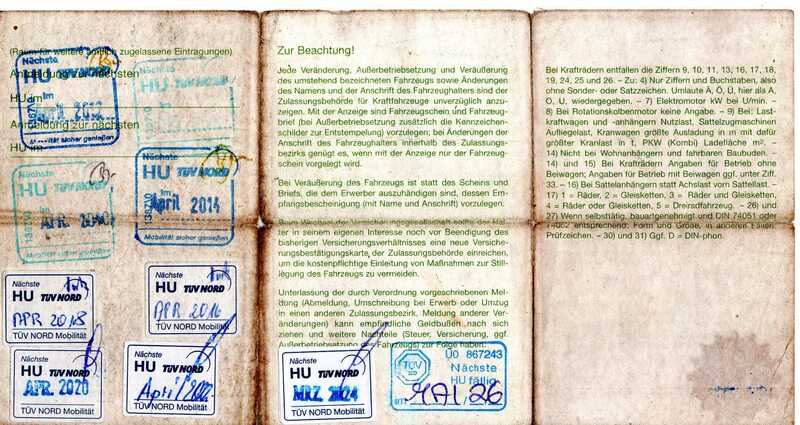 (Raum für weitere amtlich zugelassene Eintragungen)
Anmeldung zur nächsten
HU im
Anmeldung zur nächsten
HU im
Nächste
HU TÜV NORD
im
April 2012
Mobilität sicher genießen
Nächste
HU TÜV NORD
im
Nächste
HU TÜV NORD
im
APR. 2010
Nächste
HU TÜV NORD
im
April 2014
Mobilität sicher genießen
Nächste
HU TÜV NORD
APR 2018
TÜV NORD Mobilität
Nächste
HU TÜV NORD
APR 2016
TÜV NORD Mobilität
Nächste
HU TÜV NORD
APR. 2020
TÜV NORD Mobilität
Nächste
HU TÜV NORD
April
TÜV NORD Mobilität
Zur Beachtung!
Jede Veränderung, Außerbetriebsetzung und Veräußerung
des umstehend bezeichneten Fahrzeugs sowie Änderungen
des Namens und der Anschrift des Fahrzeughalters sind der
Zulassungsbehörde für Kraftfahrzeuge unverzüglich anzu-
zeigen. Mit der Anzeige sind Fahrzeugschein und Fahrzeug-
brief (bei Außerbetriebsetzung zusätzlich die Kennzeichen-
schilder zur Entstempelung) vorzulegen; bei Änderungen
der Anschrift des Fahrzeughalters innerhalb des Zulassungs-
bezirks genügt es, wenn mit der Anzeige nur der Fahrzeug-
schein vorgelegt wird.
Bei Veräußerung des Fahrzeugs ist statt des Scheins und
Briefs, die dem Erwerber auszuhändigen sind, dessen Emp-
fangsbescheinigung (mit Name und Anschrift) vorzulegen.
Beim Wechsel der Versicherungsgesellschaft sollte der Hal-
ter in seinem eigenen Interesse noch vor Beendigung des
bisherigen Versicherungsverhältnisses eine neue Versiche-
rungsbestätigungskarte der Zulassungsbehörde einreichen,
um die kostenpflichtige Einleitung von Maßnahmen zur Still-
legung des Fahrzeugs zu vermeiden.
Unterlassung der durch Verordnung vorgeschriebenen Mel-
dung (Abmeldung, Umschreibung bei Erwerb oder Umzug
in einen anderen Zulassungsbezirk, Meldung anderer Ver-
änderungen) kann empfindliche Geldbußen nach sich
ziehen und weitere Nachteile (Steuer, Versicherung, ggf.
Außerbetriebsetzung des Fahrzeugs) zur Folge haben.
Nächste
HU TÜV NORD
MRZ. 2024
TÜV NORD Mobilität
TÜV
ÜO 867243
Nächste
HU fällig
MAI 26
Bei Krafträdern entfallen die Ziffern 9, 10, 11, 13, 16, 17, 18,
19, 24, 25 und 26. – Zu: 4) Nur Ziffern und Buchstaben, also
ohne Sonder- oder Satzzeichen. Umlaute Ä, Ö, Ü, hier als A,
O, U, wiedergegeben. – 7) Elektromotor kW bei U/min. –
8) Bei Rotationskolbenmotor keine Angabe. – 9) Bei: Last-
kraftwagen und -anhängern Nutzlast, Sattelzugmaschinen
Aufliegelast, Kranwagen größte Ausladung in m mit dafür
größter Kranlast in t, PKW (Kombi) Ladefläche m². –
14) Nicht bei Wohnanhängern und fahrbaren Baubuden. –
14) und 15) Bei Krafträdern Angaben für Betrieb ohne
Beiwagen; Angaben für Betrieb mit Beiwagen ggf. unter Ziff.
33. – 16) Bei Sattelanhängern statt Achslast vorn Sattellast. –
17) 1 = Räder, 2 = Gleisketten, 3 = Räder und Gleisketten,
4 = Räder oder Gleisketten, 5 = Dreiradfahrzeug. – 26) und
27) Wenn selbsttätig, bauartgenehmigt und DIN 74051 oder
74052 entsprechend: Form und Größe, in anderen Fällen:
Prüfzeichen. – 30) und 31) Ggf. D = DIN-phon.